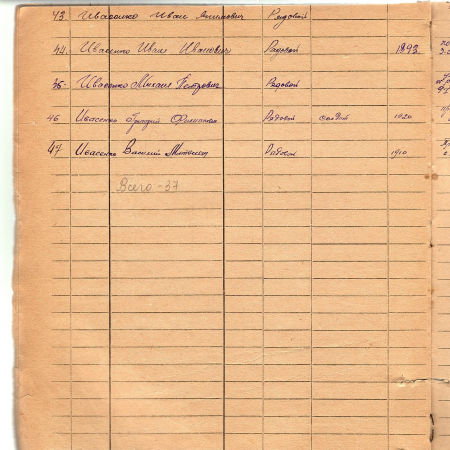 43. Иващенко Иван Рядовой
44. Иващенко Иван Иванович Рядовой 1893
45. Иващенко Михаил Петрович Рядовой
46 Иващенко Григорий Рядовой солдат 1920
47 Иващенко Василий Рядовой 1910
Всего - 37